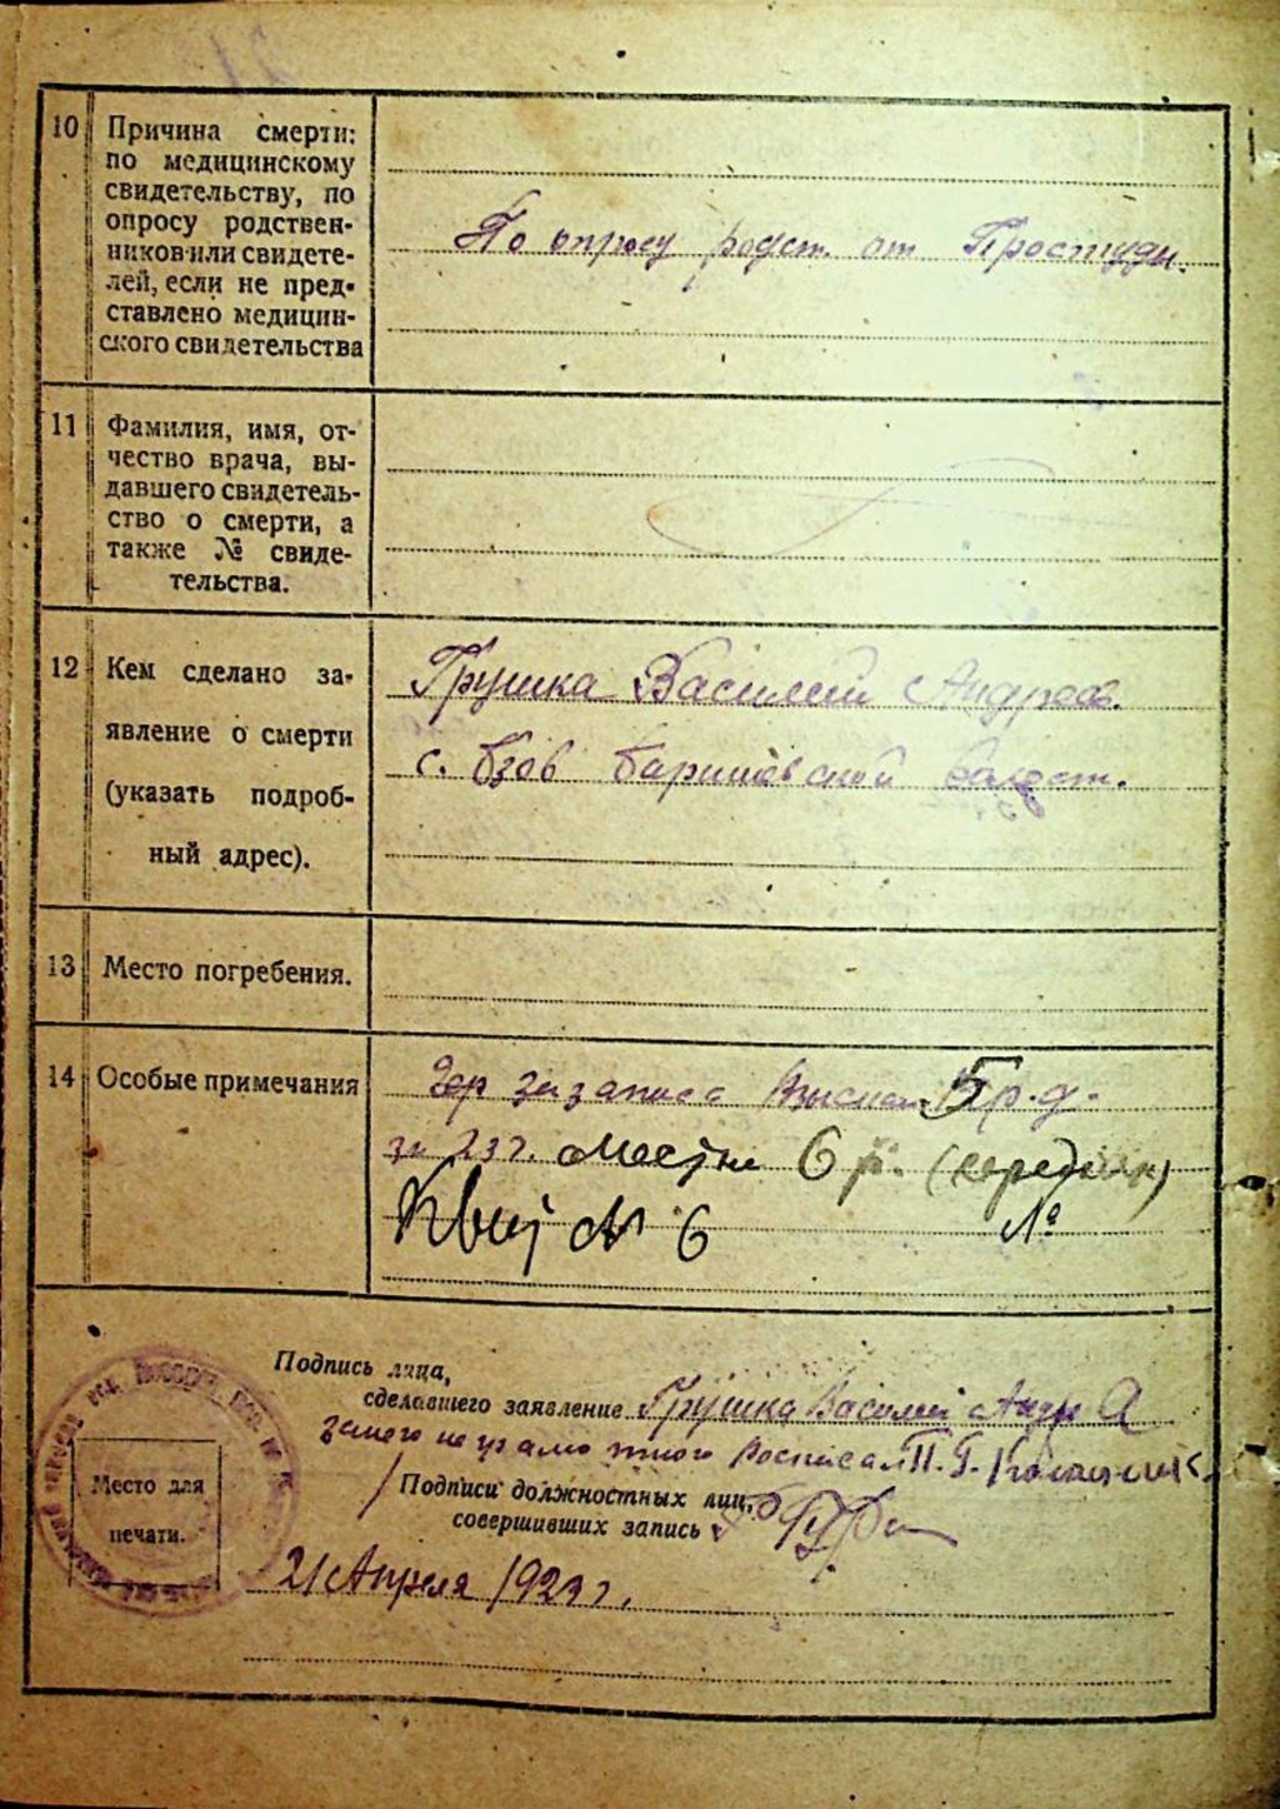 10 Причина смерти:
по медицинскому
свидетельству, по
опросу родствен-
ников или свидете-
лей, если не пред-
ставлено медицин-
ского свидетельства
По опросу родст. от Простуды.
11 Фамилия, имя, от-
чество врача, вы-
давшего свидетель-
ство о смерти, а
также № свиде-
тельства.
12 Кем сделано за-
явление о смерти
(указать подроб-
ный адрес).
Грушка Василий Андреев.
с. Бзов Баришевской волост.
13 Место погребения.
14 Особые примечания
за 23 г. 6 р. (середняк)
Квит № 6 №
Подпись лица,
сделавшего заявление Грушка Василий Андр А
занего неграмотного Росписал П. Г.
Подписи должностных лиц,
совершивших запись
Место для
печати.
21 Апреля 1923 г.